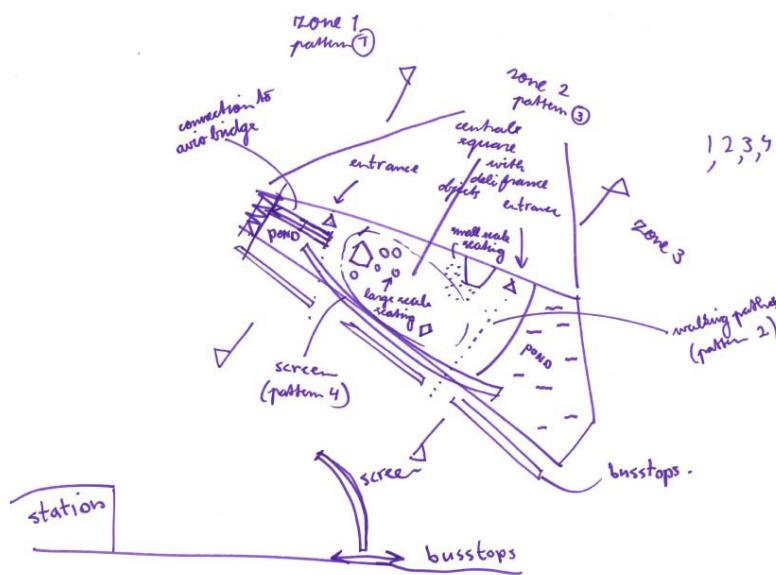 zone 1
pattern ①
zone 2
pattern ③
1, 2, 3, 4
connection to
avio bridge
centrale
square
with
delifrance
objects
entrance
entrance
zone 3
small scale
seating
POND
large scale
seating
walking paths
(pattern 2)
POND
screen
(pattern 4)
screen
busstops.
station
busstops